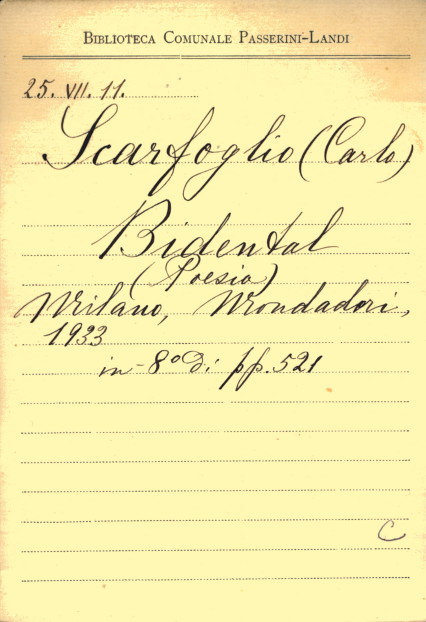 BIBLIOTECA COMUNALE PASSERINI-LANDI
25. VII. 11.
Scarfoglio (Carlo)
Bidental
(Poesia)
Milano, Mondadori,
1933
in-8º di pp. 521
C